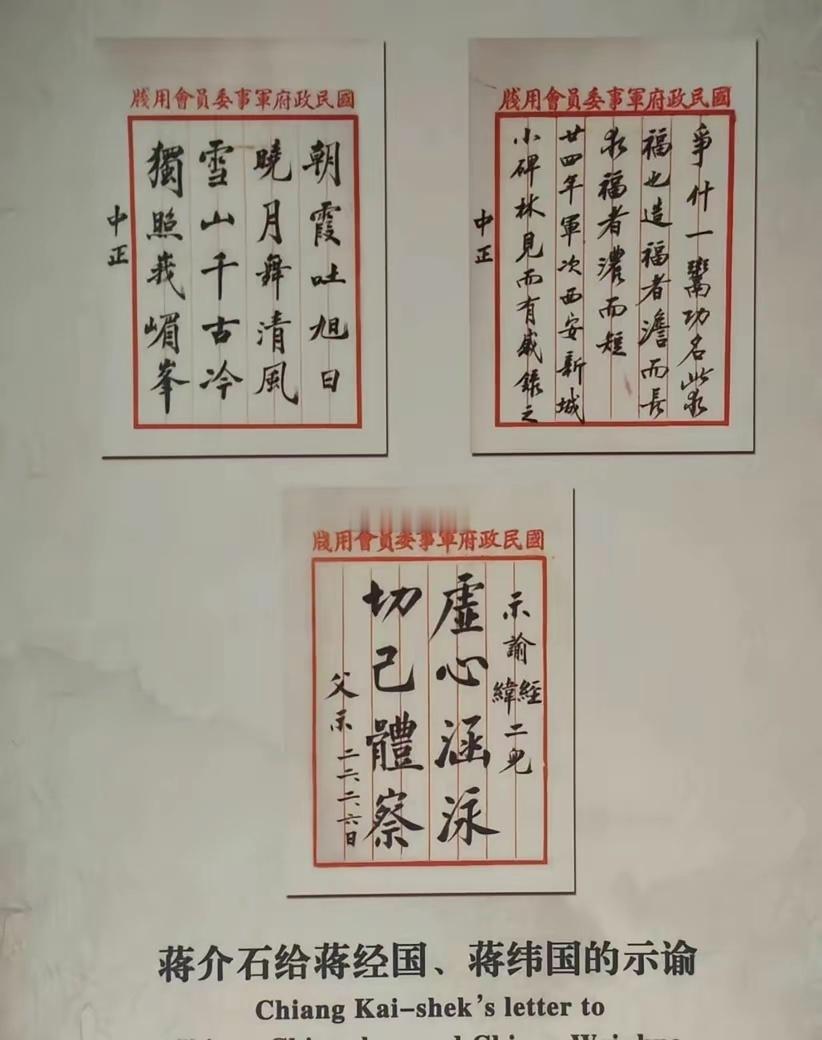 國民政府軍事委員會用牋
朝霞吐旭日
曉月舞清風
雪山千古冷
獨照峩嵋峯
中正
國民政府軍事委員會用牋
爭什一鬻功名此求
福也造福者澹而長
求福者濃而短
廿四年軍次西安新城
小碑林見而有感錄之
中正
國民政府軍事委員會用牋
示諭經緯二兒
虛心涵泳
切己體察
父示
蒋介石给蒋经国、蒋纬国的示谕
Chiang Kai-shek's letter to